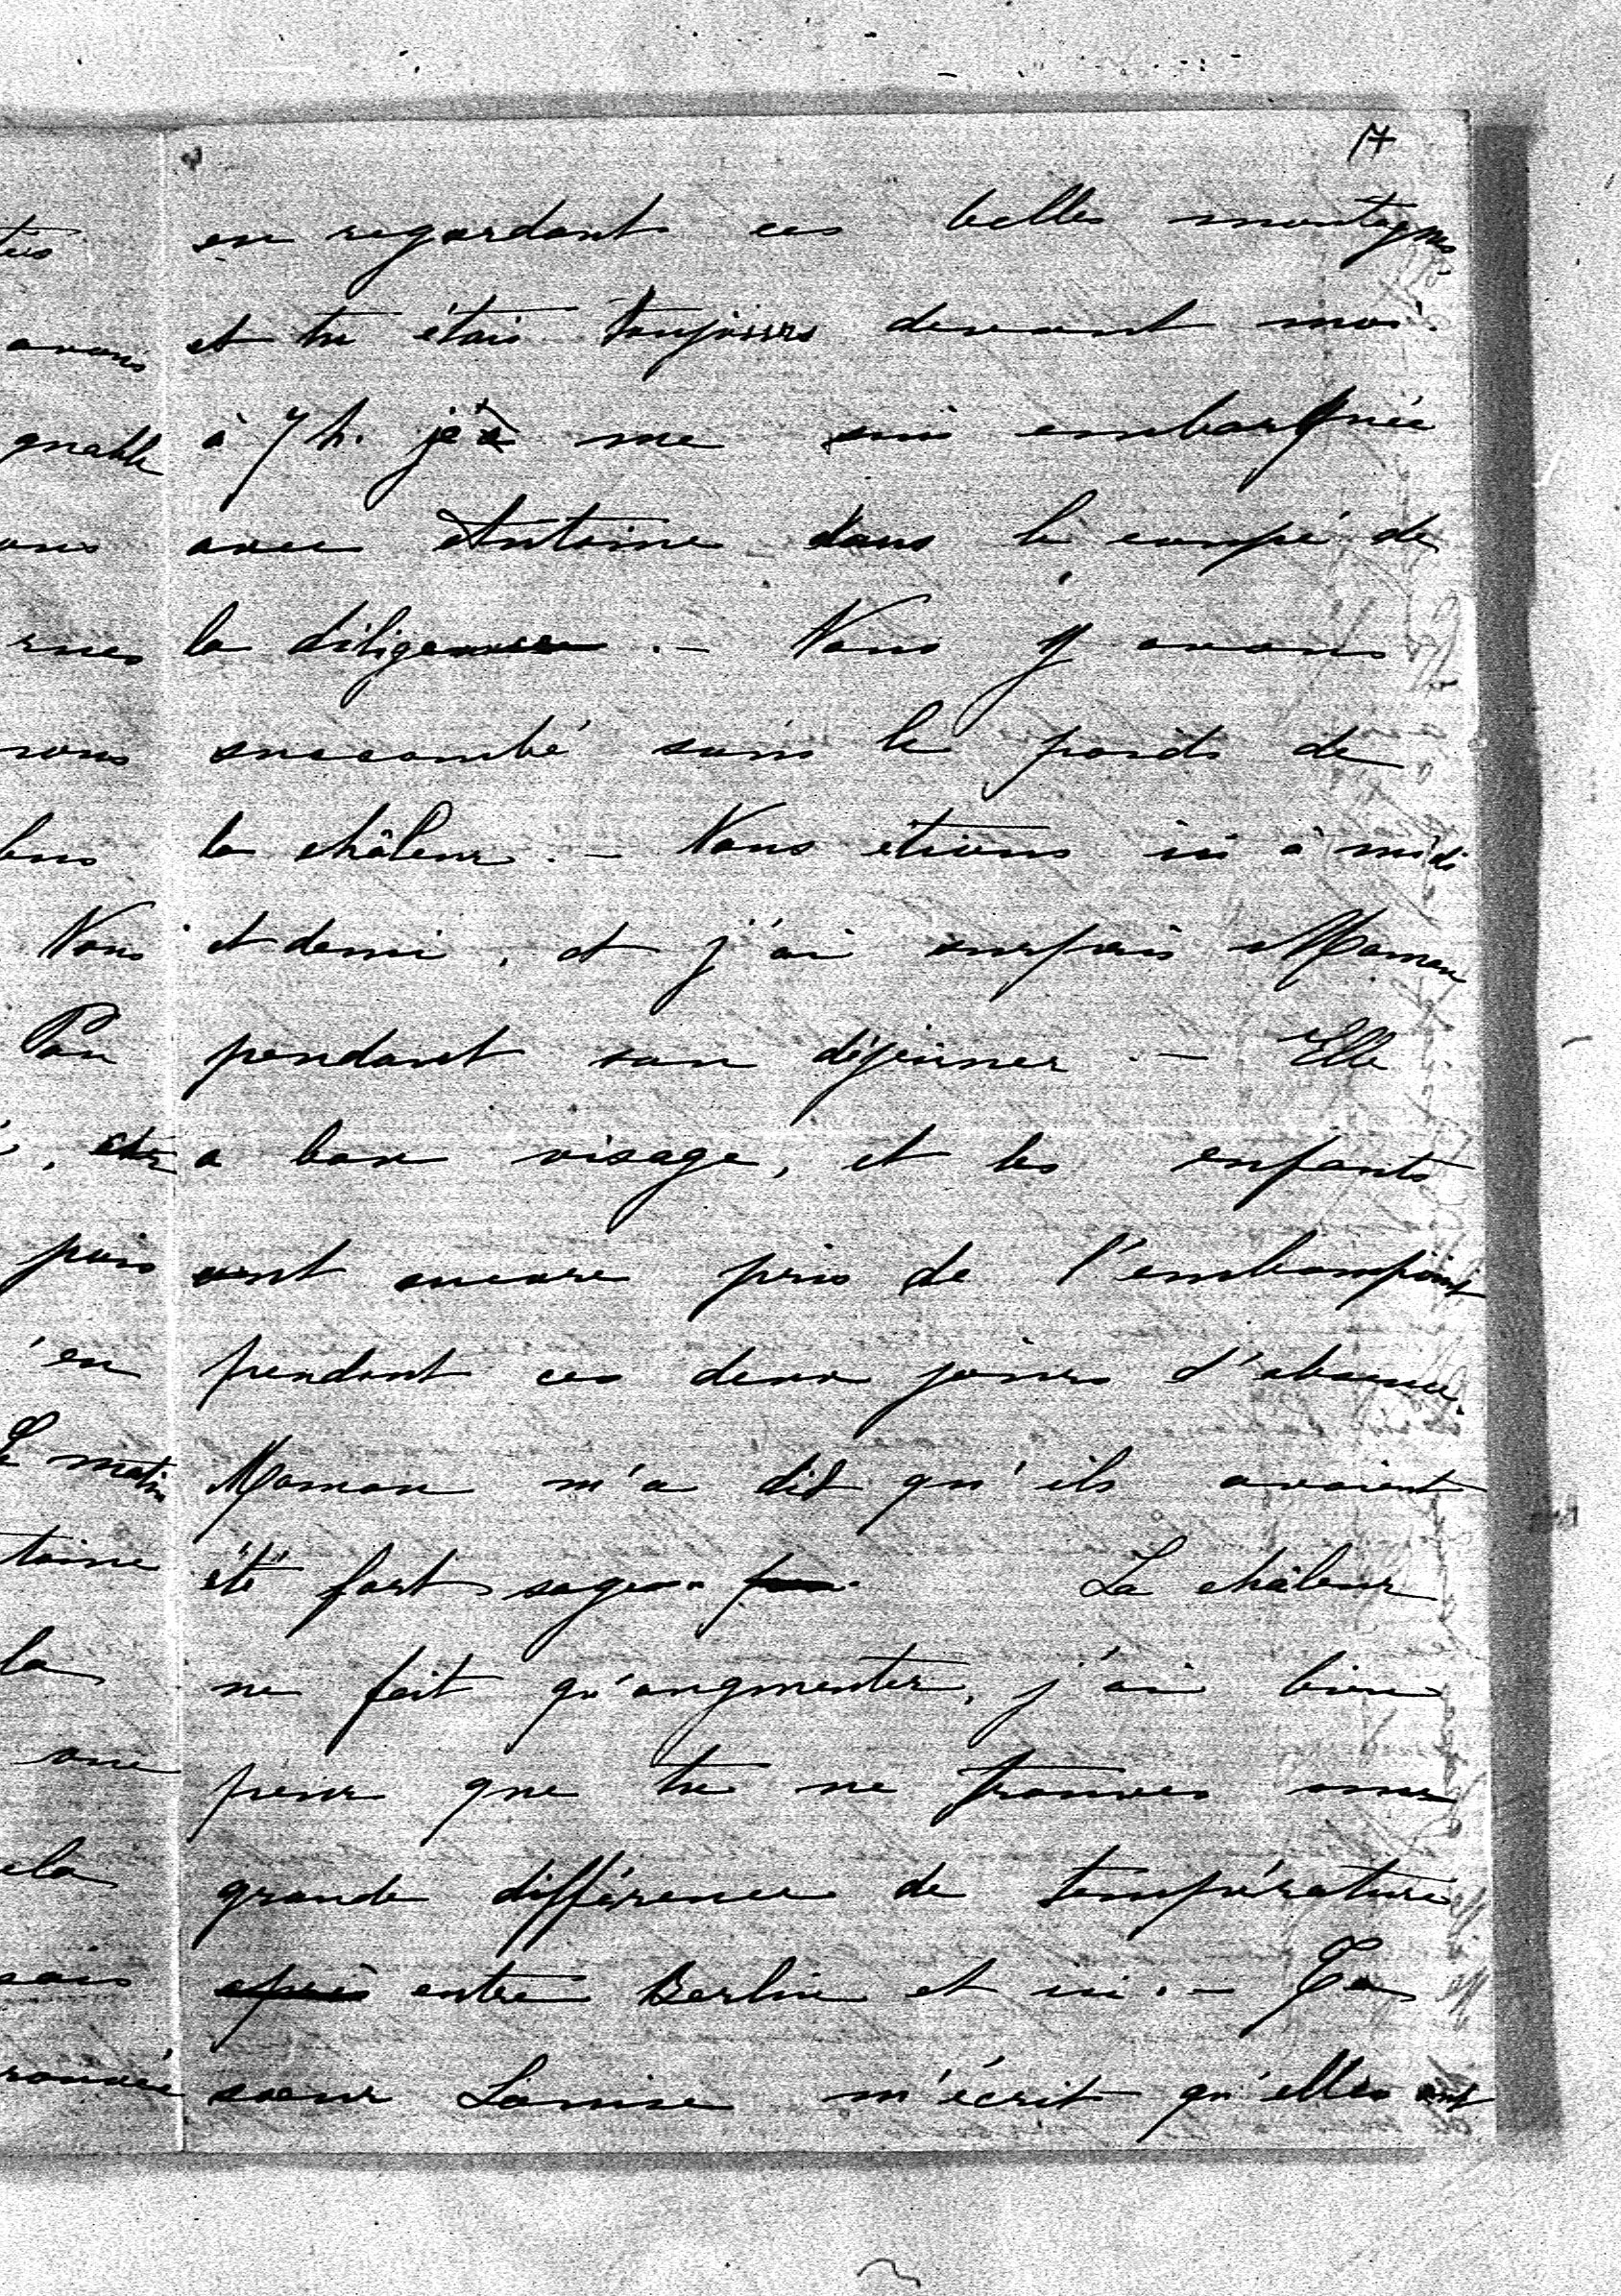 17
en regardant ces belles montagnes
et tu étais toujours devant moi.
à 7 h. je me suis embarquée
avec Antoine dans le coupé de
la diligence. — Nous y avons
succombé sous le poids de
la châleur. — Nous étions ici à midi
et demi, et j'ai surpris Maman
pendant son déjeuner. — Elle
a bon visage, et les enfants
ont encore pris de l'embonpoint
pendant ces deux jours d'absence.
Maman m'a dit qu'ils avaient
été fort sages. La châleur
ne fait qu'augmenter, j'ai bien
peur que tu ne trouves une
grande différence de température
après entre Berlin et ici. — Ta
soeur Louise m'écrit qu'elles ont